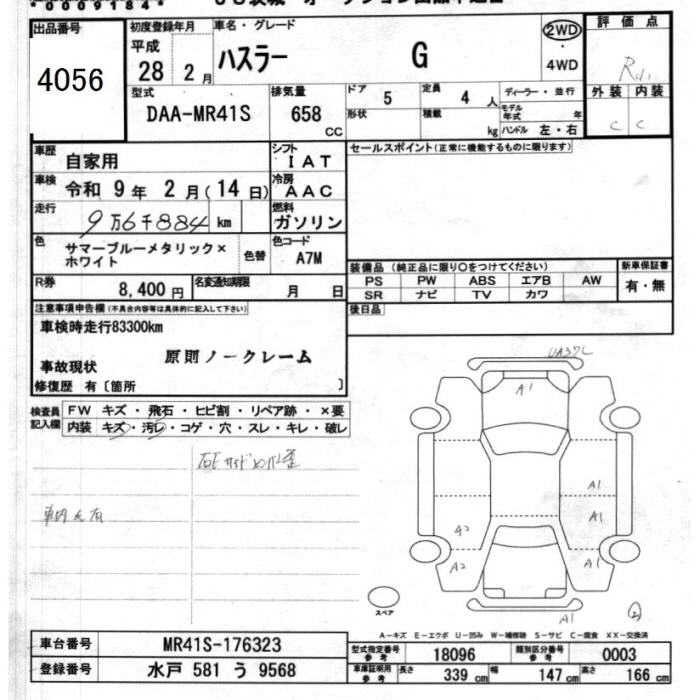 *0009184*
出品番号 4056
初度登録年月 平成 28 2 月
車名・グレード ハスラー G
2WD・4WD
評価点
外装 内装
C C
型式 DAA-MR41S
排気量 658 CC
ドア 5
形状
定員 4 人
積載 kg
ディーラー・並行
モデル年式 年
ハンドル 左・右
車歴 自家用
シフト IAT
車検 令和 9 年 2 月(14 日)
冷房 AAC
走行 9万6千884 km
燃料 ガソリン
色 サマーブルーメタリック×ホワイト
色替
色コード A7M
R券 8,400 円
名変通知期限 月 日
セールスポイント(正常に機能するものに限ります)
装備品(純正品に限り○をつけてください)
PS PW ABS エアB AW
SR ナビ TV カワ
新車保証書
有・無
後日品
注意事項申告欄(不具合内容等は具体的に記入して下さい)
車検時走行83300km
原則ノークレーム
事故現状
修復歴 有〔箇所 〕
検査員記入欄
FW キズ・飛石・ヒビ割・リペア跡・×要
内装・キズ・汚レ・コゲ・穴・スレ・キレ・破レ
UA37L
A1
A1
A1
A2
A2
A1
A1
スペア
A-キズ E-エクボ U-凹み W-補修跡 S-サビ C-腐食 XX-交換済
車台番号 MR41S-176323
登録番号 水戸 581 う 9568
型式指定番号 参考 18096
類別区分番号 参考 0003
車庫証明用 参考 長さ 339 cm 幅 147 cm 高さ 166 cm